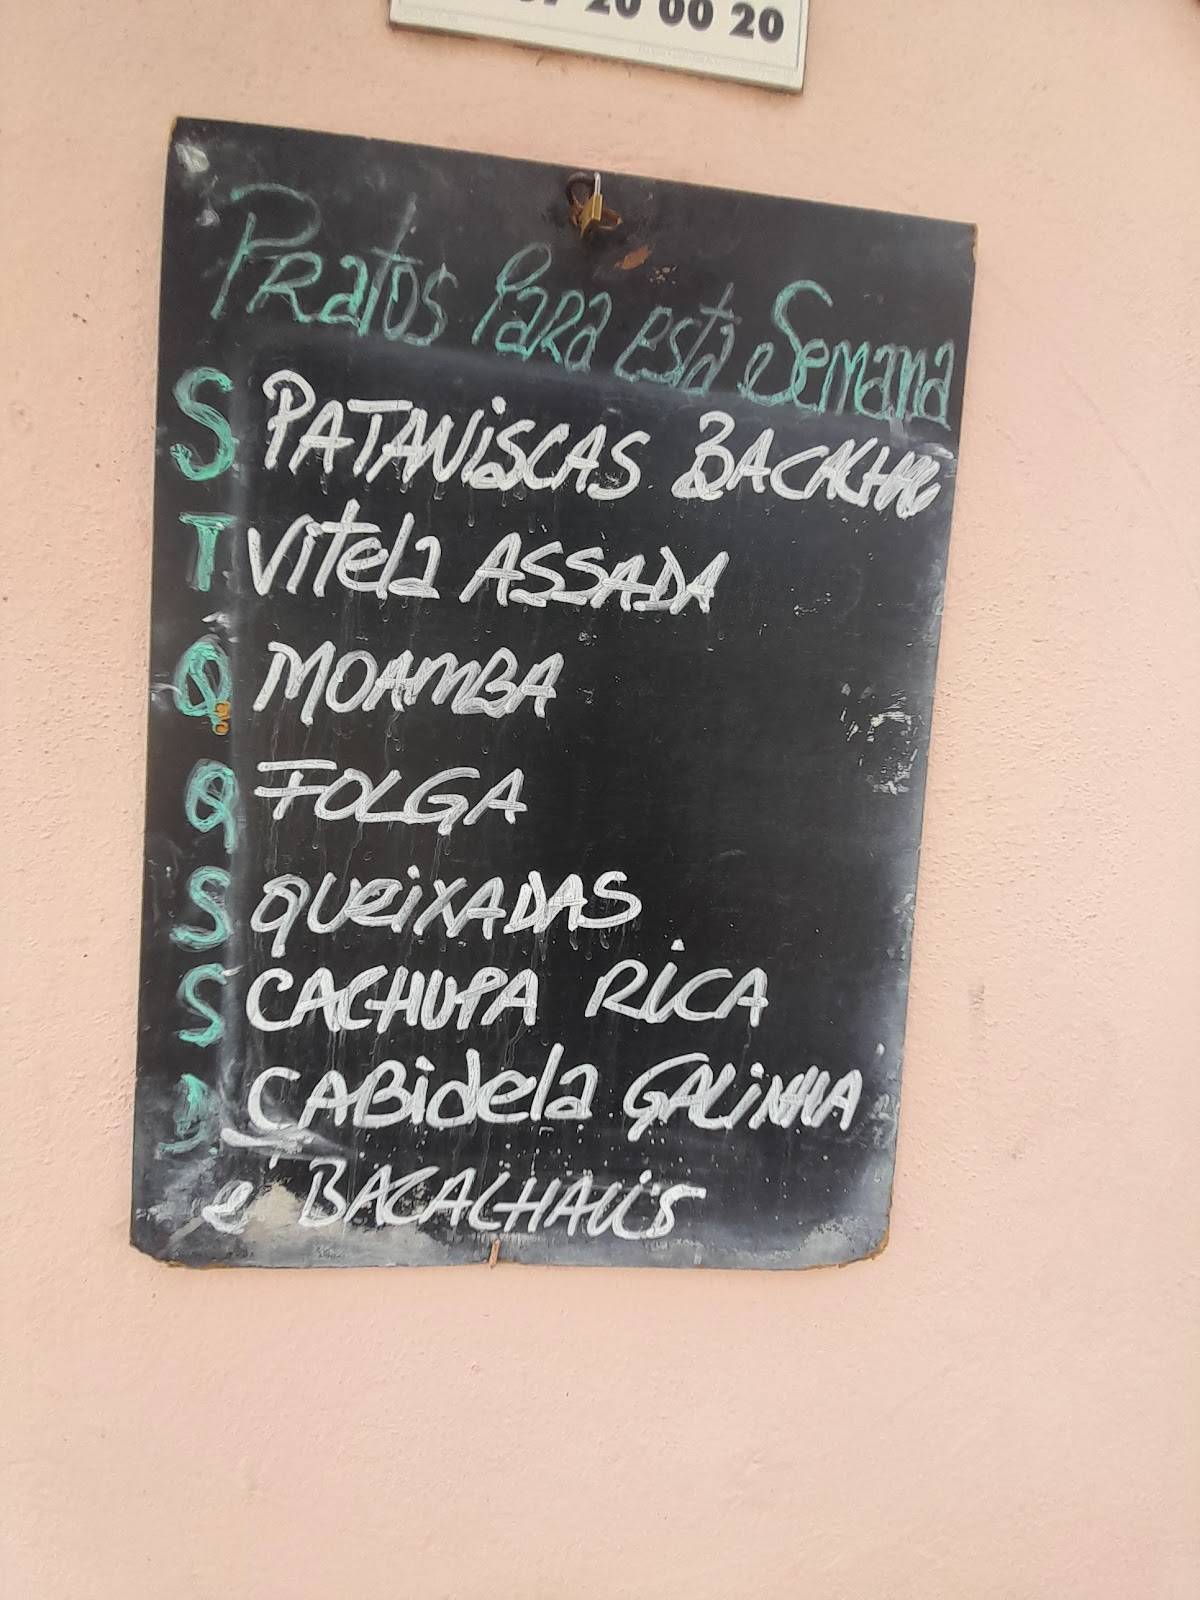 20 00 20
Pratos Para esta Semana
S PATANiSCAS BACALHAU
T Vitela ASSADA
Q MOAMBA
Q FOLGA
S QUEiXADAS
S CACHUPA RICA
D CABidela GALiNHA
e BACALHAUS